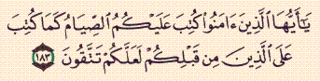 يَٰٓأَيُّهَا ٱلَّذِينَ ءَامَنُوا۟ كُتِبَ عَلَيْكُمُ ٱلصِّيَامُ كَمَا كُتِبَ
عَلَى ٱلَّذِينَ مِن قَبْلِكُمْ لَعَلَّكُمْ تَتَّقُونَ ١٨٣